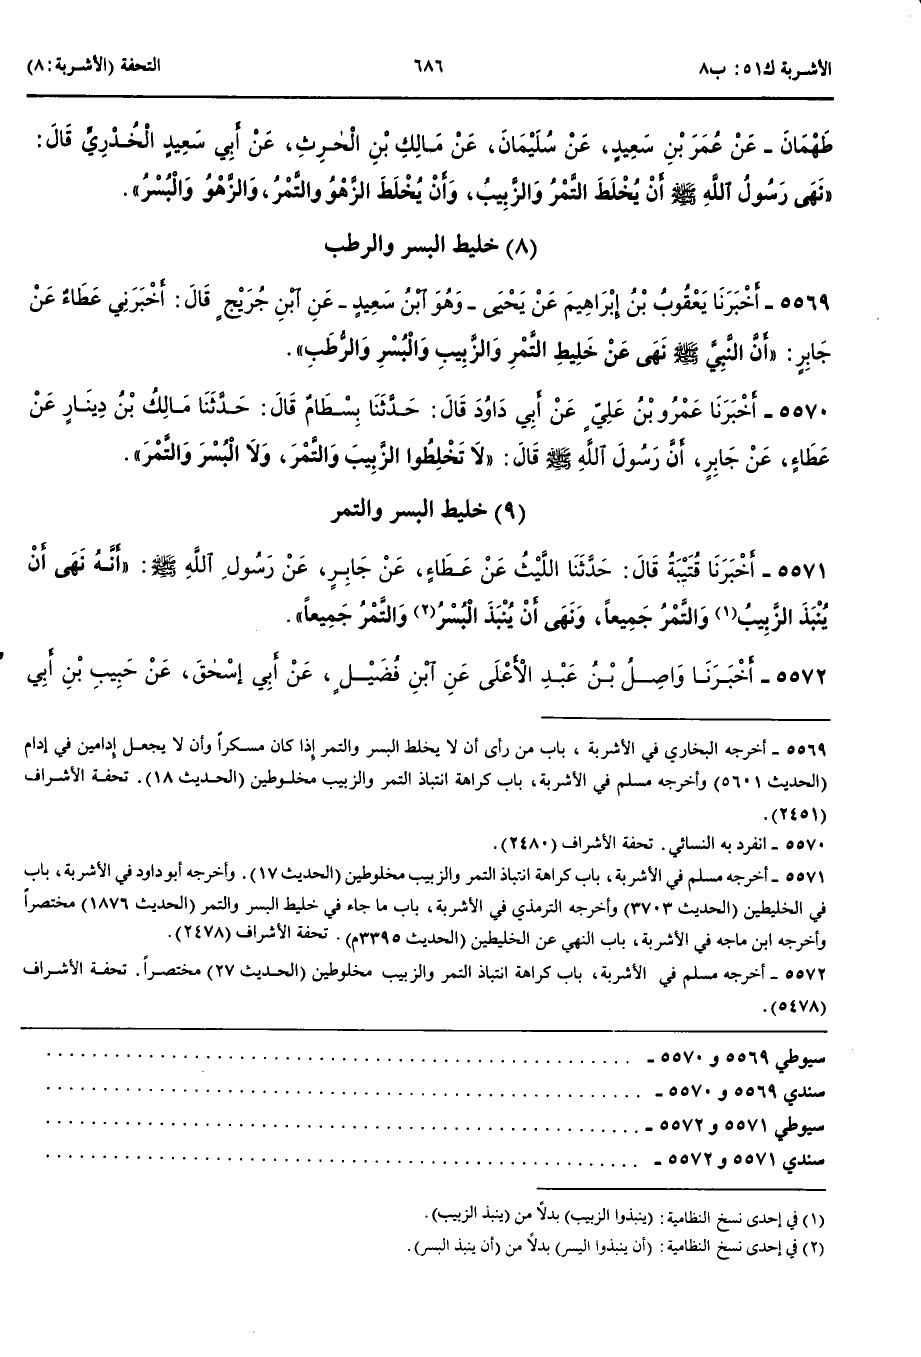 الأشربة ك٥١: ب٨ ٦٨٦ التحفة (الأشربة: ٨)
طَهْمَانَ ـ عَنْ عُمَرَ بْنِ سَعِيدٍ، عَنْ سُلَيْمَانَ، عَنْ مَالِكِ بْنِ الْحٰرِثِ، عَنْ أَبِي سَعِيدٍ الْخُدْرِيِّ قَالَ:
«نَهَى رَسُولُ ٱللَّهِ ﷺ أَنْ يُخْلَطَ التَّمْرُ وَالزَّبِيبُ، وَأَنْ يُخْلَطَ الزَّهْوُ والتَّمْرُ، وَالزَّهْوُ وَالْبُسْرُ».
(٨) خليط البسر والرطب
٥٥٦٩ ـ أَخْبَرَنَا يَعْقُوبُ بْنُ إِبْرَاهِيمَ عَنْ يَحْيَى ـ وَهُوَ ٱبْنُ سَعِيدٍ ـ عَنِ ٱبْنِ جُرَيْجٍ قَالَ: أَخْبَرَنِي عَطَاءٌ عَنْ
جَابِرٍ: «أَنَّ النَّبِيَّ ﷺ نَهَى عَنْ خَلِيطِ التَّمْرِ وَالزَّبِيبِ وَالْبُسْرِ وَالرُّطَبِ».
٥٥٧٠ ـ أَخْبَرَنَا عَمْرُو بْنُ عَلِيٍّ عَنْ أَبِي دَاوُدَ قَالَ: حَدَّثَنَا بِسْطَامٌ قَالَ: حَدَّثَنَا مَالِكُ بْنُ دِينَارٍ عَنْ
عَطَاءٍ، عَنْ جَابِرٍ، أَنَّ رَسُولَ ٱللَّهِ ﷺ قَالَ: «لَا تَخْلِطُوا الزَّبِيبَ وَالتَّمْرَ، وَلَا الْبُسْرَ وَالتَّمْرَ».
(٩) خليط البسر والتمر
٥٥٧١ ـ أَخْبَرَنَا قُتَيْبَةُ قَالَ: حَدَّثَنَا اللَّيْثُ عَنْ عَطَاءٍ، عَنْ جَابِرٍ، عَنْ رَسُولِ ٱللَّهِ ﷺ: «أَنَّهُ نَهَى أَنْ
يُنْبَذَ الزَّبِيبُ(١) وَالتَّمْرُ جَمِيعاً، وَنَهَى أَنْ يُنْبَذَ الْبُسْرُ(٢) وَالتَّمْرُ جَمِيعاً».
٥٥٧٢ ـ أَخْبَرَنَا وَاصِلُ بْنُ عَبْدِ الْأَعْلَى عَنِ ٱبْنِ فُضَيْلٍ، عَنْ أَبِي إِسْحٰقَ، عَنْ حَبِيبِ بْنِ أَبِي
٥٥٦٩ ـ أخرجه البخاري في الأشربة ، باب من رأى أن لا يخلط البسر والتمر إذا كان مسكراً وأن لا يجعل إدامين في إدام
(الحديث ٥٦٠١) وأخرجه مسلم في الأشربة، باب كراهة انتباذ التمر والزبيب مخلوطين (الحديث ١٨). تحفة الأشراف
(٢٤٥١).
٥٥٧٠ ـ انفرد به النسائي. تحفة الأشراف (٢٤٨٠).
٥٥٧١ ـ أخرجه مسلم في الأشربة، باب كراهة انتباذ التمر والزبيب مخلوطين (الحديث ١٧). وأخرجه أبو داود في الأشربة، باب
في الخليطين (الحديث ٣٧٠٣) وأخرجه الترمذي في الأشربة، باب ما جاء في خليط البسر والتمر (الحديث ١٨٧٦) مختصراً
وأخرجه ابن ماجه في الأشربة، باب النهي عن الخليطين (الحديث ٣٣٩٥م). تحفة الأشراف (٢٤٧٨).
٥٥٧٢ ـ أخرجه مسلم في الأشربة، باب كراهة انتباذ التمر والزبيب مخلوطين (الحديث ٢٧) مختصراً. تحفة الأشراف
(٥٤٧٨).
سيوطي ٥٥٦٩ و ٥٥٧٠ ـ ..................................................
سندي ٥٥٦٩ و ٥٥٧٠ ـ ..................................................
سيوطي ٥٥٧١ و ٥٥٧٢ ـ ..................................................
سندي ٥٥٧١ و ٥٥٧٢ ـ ..................................................
(١) في إحدى نسخ النظامية: (ينبذوا الزبيب) بدلًا من (ينبذ الزبيب).
(٢) في إحدى نسخ النظامية: (أن ينبذوا اليسر) بدلًا من (أن ينبذ البسر).